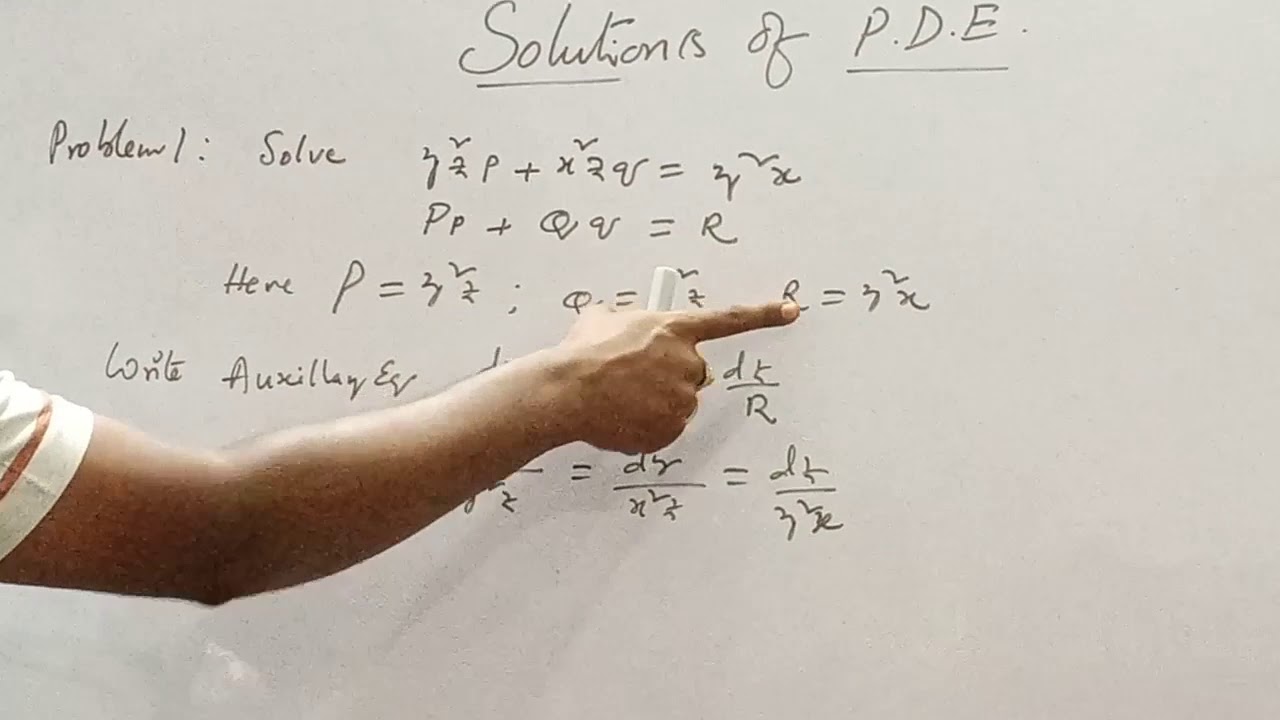 Solutions of P.D.E.
Problem 1: Solve y²z p + x²z q = y²x
Pp + Qq = R
Here P = y²z ; Q = ²z R = y²x
Write Auxillary Eq dz/R
y²z = dy/x²z = dz/y²x